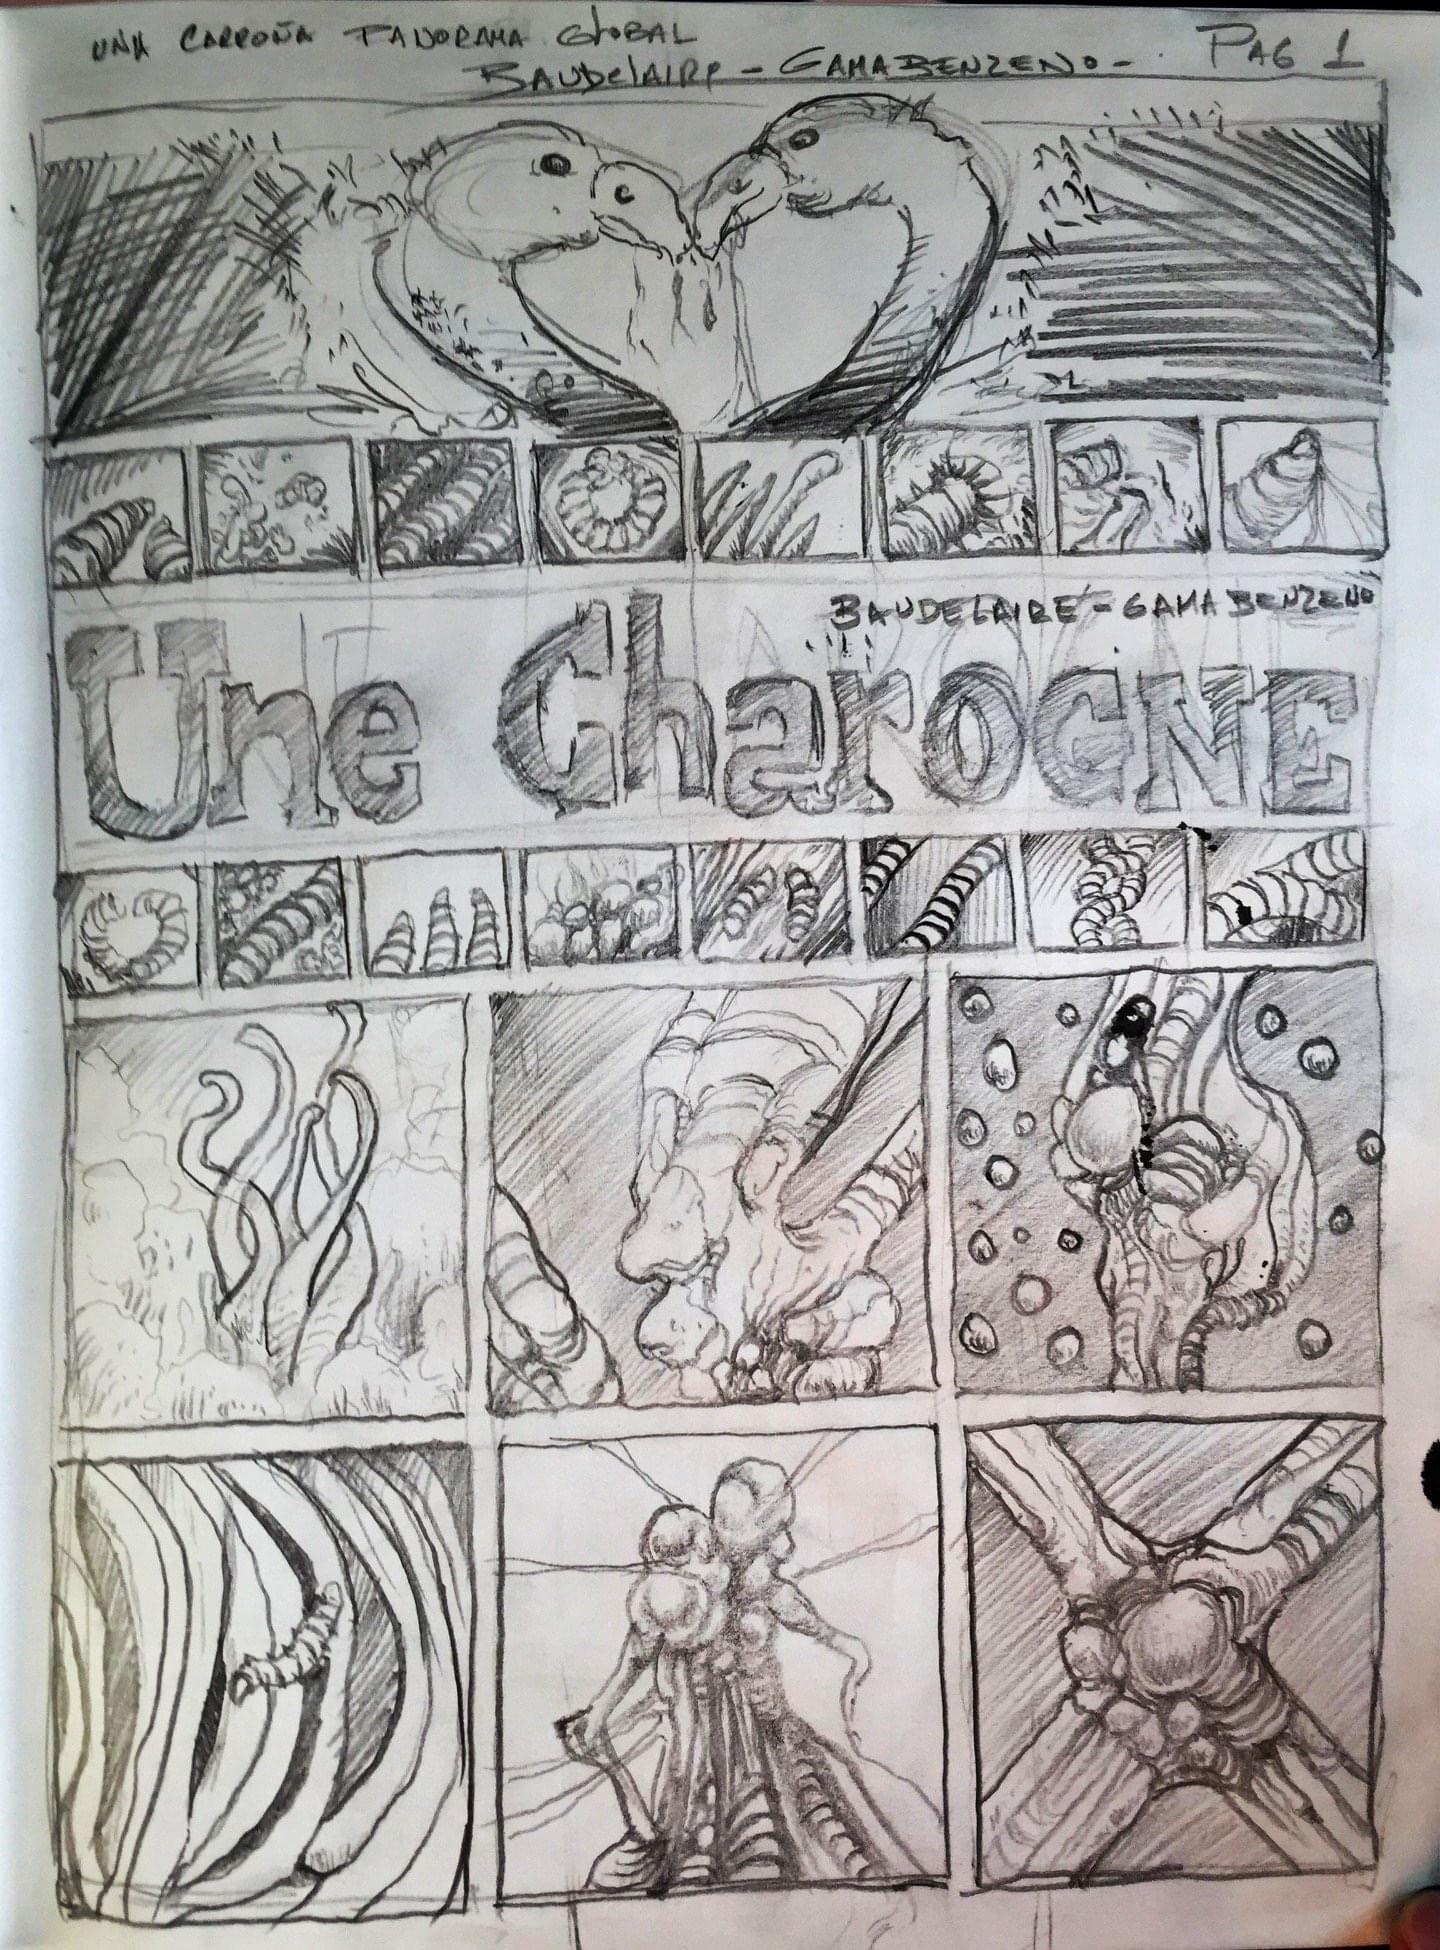 UNA CARROÑA PANORAMA GLOBAL
BAUDELAIRE - GAMABENZENO - PAG 1
BAUDELAIRE - GAMABENZENO
Une CharOGNE